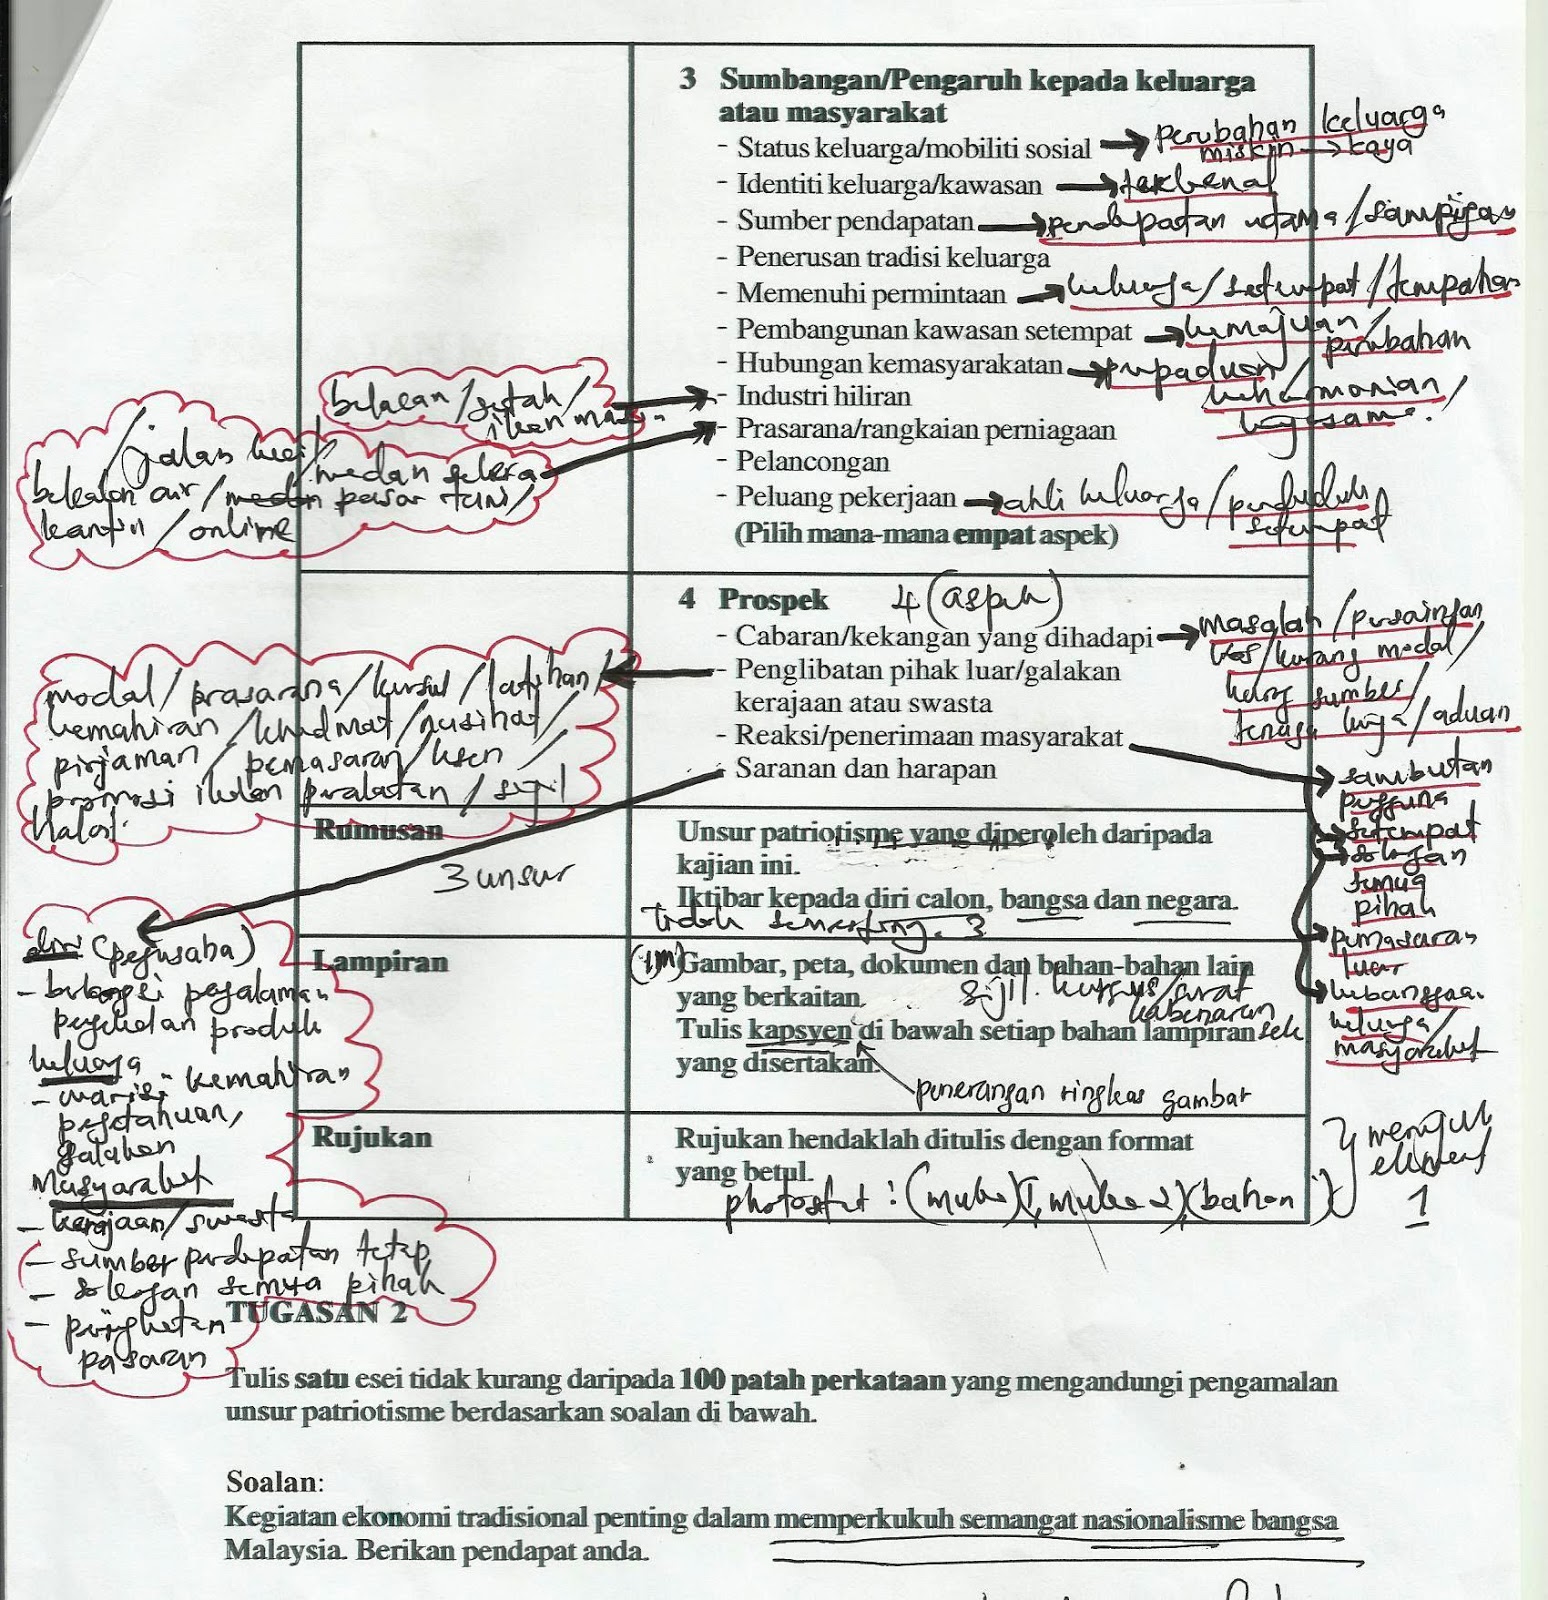 3 Sumbangan/Pengaruh kepada keluarga
atau masyarakat
- Status keluarga/mobiliti sosial → perubahan keluarga
miskin → kaya
- Identiti keluarga/kawasan → terkenal
- Sumber pendapatan → pendapatan utama/sampingan
- Penerusan tradisi keluarga
- Memenuhi permintaan → keluarga/setempat/tempahan
- Pembangunan kawasan setempat → kemajuan/
perubahan
- Hubungan kemasyarakatan → perpaduan/
keharmonian/
kerjasama.
- Industri hiliran
belacan/satah/
ikan
- Prasarana/rangkaian perniagaan
/jalan /medan selera
bekalan air/medan pasar tani/
kantin/online
- Pelancongan
- Peluang pekerjaan → ahli keluarga/penduduk
setempat
(Pilih mana-mana empat aspek)
4 Prospek 4 (aspek)
- Cabaran/kekangan yang dihadapi → masalah/persaingan
kos/kurang modal/
kurang sumber/
tenaga kerja/aduan
- Penglibatan pihak luar/galakan
kerajaan atau swasta
modal/prasarana/kursus/latihan/
kemahiran/khidmat/nasihat/
pinjaman/pemasaran/lesen/
promosi iklan peralatan/sijil
halal.
- Reaksi/penerimaan masyarakat
sambutan
pengguna
setempat
sokongan
semua
pihak
pemasaran
luar
kebanggaan
keluarga/
masyarakat
- Saranan dan harapan
diri (pengusaha)
- berkongsi pengalaman
pengenalan produk
keluarga
- warisi kemahiran
pengetahuan,
galakan
Masyarakat
- kerajaan/swasta
- sumber pendapatan tetap
- sokongan semua pihak
- peringkatan
pasaran
Rumusan
3 unsur
Unsur patriotisme yang diperoleh daripada
kajian ini.
Iktibar kepada diri calon, bangsa dan negara.
tidak semestinya 3
Lampiran
(1m) Gambar, peta, dokumen dan bahan-bahan lain
yang berkaitan. sijil kursus/surat
kebenaran
Tulis kapsyen di bawah setiap bahan lampiran sek
yang disertakan.
penerangan ringkas gambar
Rujukan
Rujukan hendaklah ditulis dengan format
yang betul.
photostat : (muka 1, muka 2) (bahan)
mengikut
element
1
TUGASAN 2
Tulis satu esei tidak kurang daripada 100 patah perkataan yang mengandungi pengamalan
unsur patriotisme berdasarkan soalan di bawah.
Soalan:
Kegiatan ekonomi tradisional penting dalam memperkukuh semangat nasionalisme bangsa
Malaysia. Berikan pendapat anda.